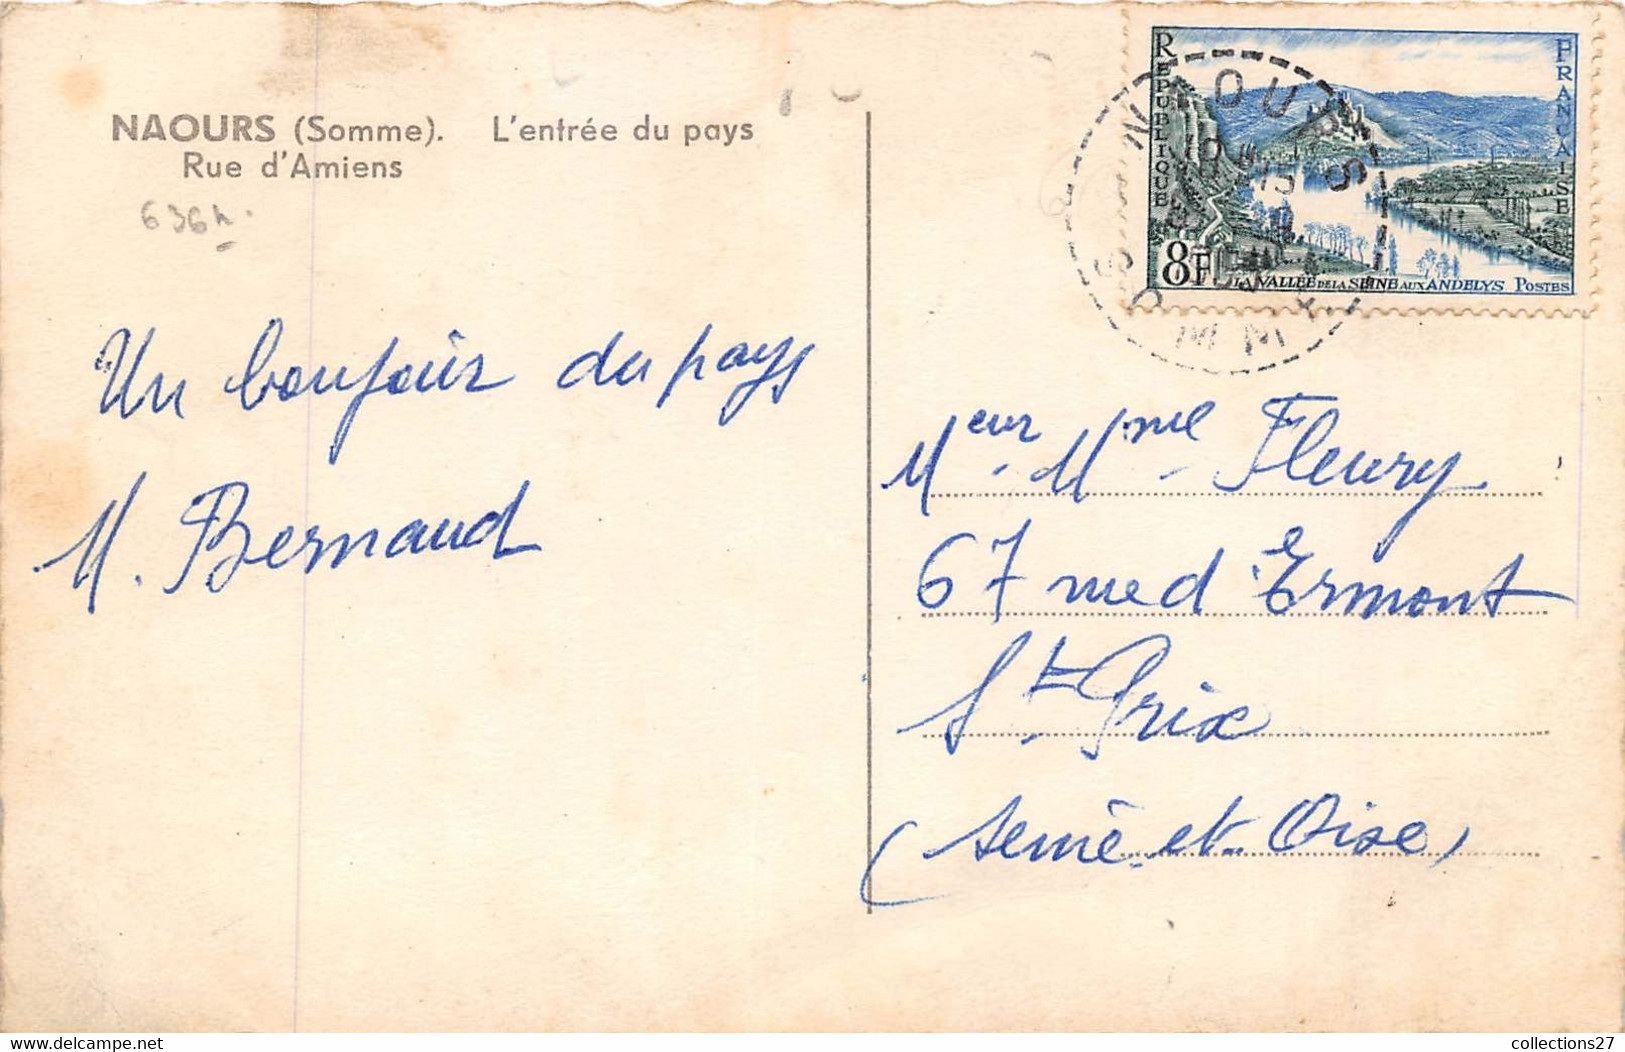 NAOURS (Somme). L'entrée du pays
Rue d'Amiens
636h.
Un bonjour du pays
M. Bernaud
REPUBLIQUE
FRANCAISE
8F
LA VALLEE DE LA SEINE AUX ANDELYS POSTES
NAOURS
SOMME
Meur. Mme Fleury
67 rue d'Ermont
St. Prix
(Seine-et-Oise)
delcampe.net
collections27